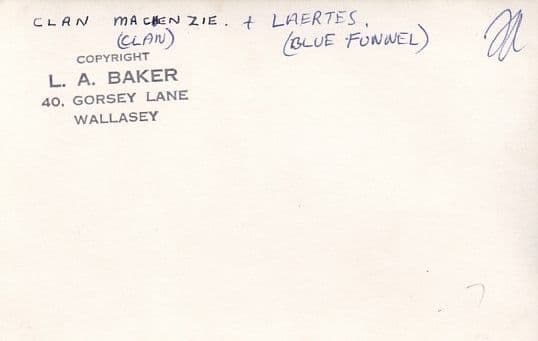 CLAN MACKENZIE. + LAERTES.
(CLAN) (BLUE FUNNEL)
COPYRIGHT
L. A. BAKER
40, GORSEY LANE
WALLASEY